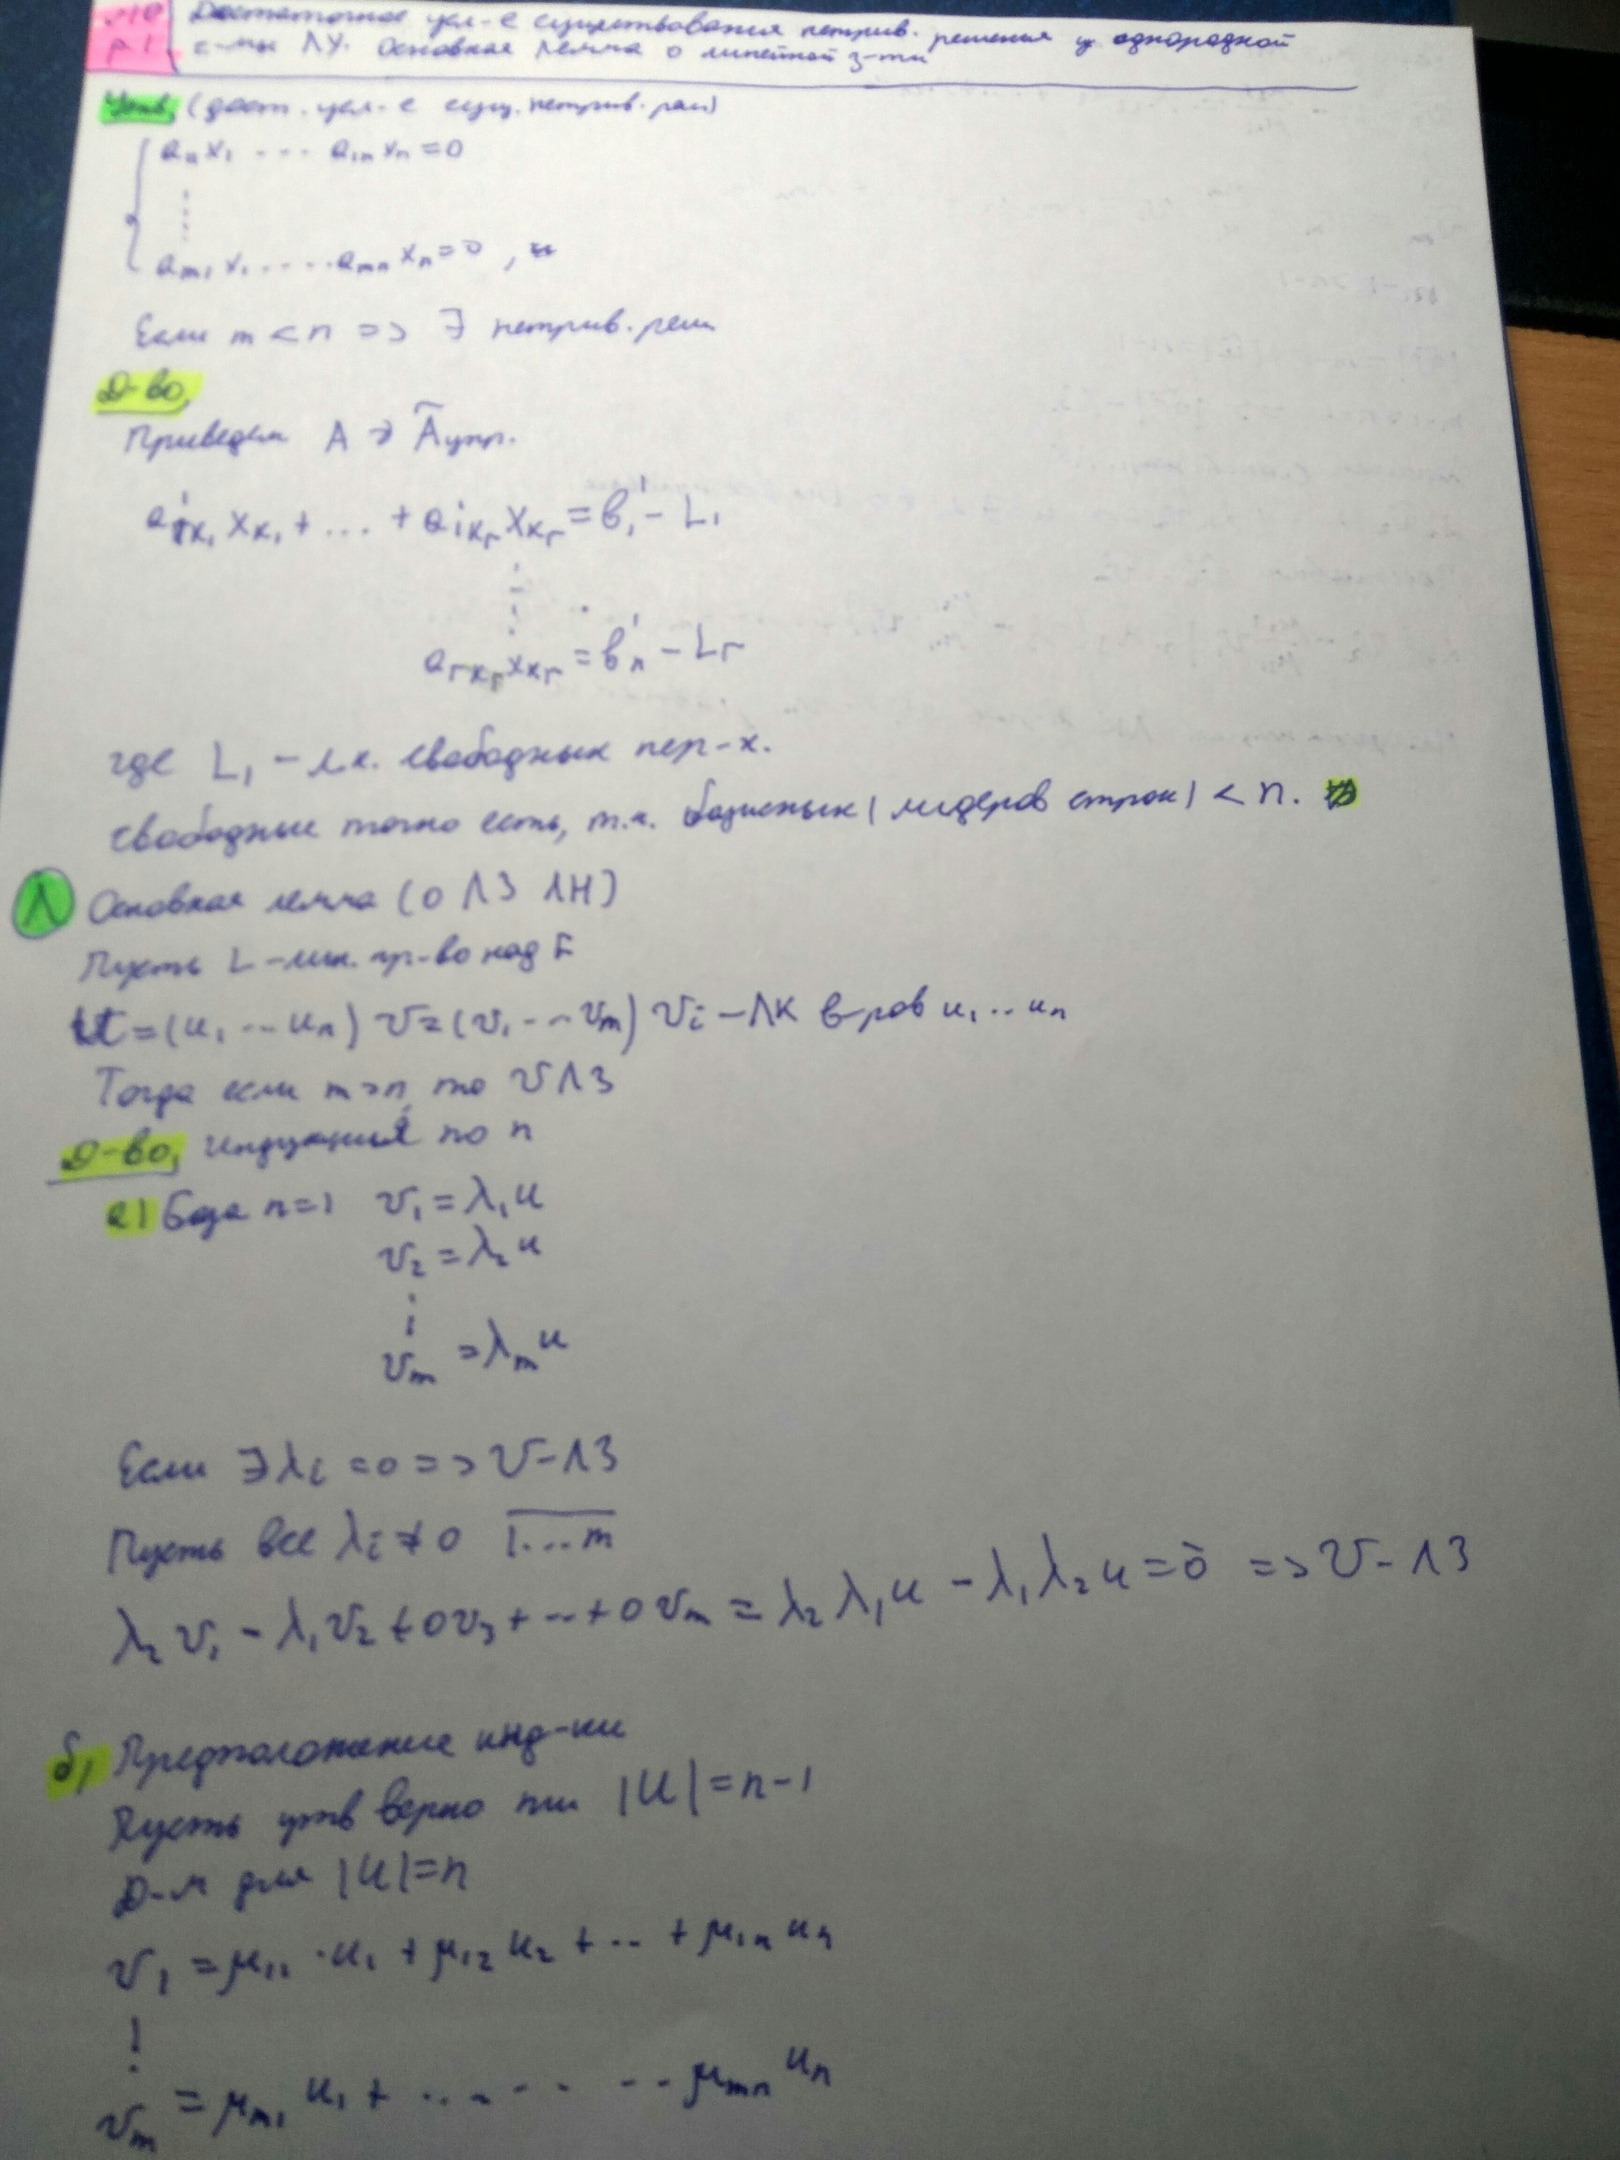 Достаточное усл-е существования нетрив. решения у однородной
с-мы ЛУ. Основная лемма о линейной з-ти
Утв. (дост. усл-е сущ. нетрив. реш)
a₁₁x₁ ... a₁ₙxₙ = 0
⋮
aₘ₁x₁ ..... aₘₙxₙ = 0,
Если m < n => ∃ нетрив. реш
Д-во,
Приведем A → Ãупр.
a'₁ₖ₁ xₖ₁ + ... + a₁ₖᵣ xₖᵣ = b'₁ - L₁
⋮
aᵣₖᵣ xₖᵣ = b'ₙ - Lᵣ
где L₁ - лк. свободных пер-х.
свободные точно есть, т.к. базисных (лидеров строк) < n.
Л Основная лемма (о ЛЗ ЛН)
Пусть L - лин. пр-во над F
U = (u₁ ... uₙ) V = (v₁ ... vₘ) vᵢ - ЛК в-ров u₁ .. uₙ
Тогда если m > n, то V ЛЗ
Д-во, индукция по n
а) База n = 1 v₁ = λ₁u
v₂ = λ₂u
⋮
vₘ = λₘu
Если ∃ λᵢ = 0 => V - ЛЗ
Пусть все λᵢ ≠ 0 1...m
λ₂v₁ - λ₁v₂ + 0v₃ + ... + 0vₘ = λ₂λ₁u - λ₁λ₂u = 0 => V - ЛЗ
б) Предположение инд-ии
Пусть утв верно при |U| = n-1
Д-м для |U| = n
v₁ = μ₁₁ · u₁ + μ₁₂ u₂ + .. + μ₁ₙ uₙ
⋮
vₘ = μₘ₁ u₁ + ........ μₘₙ uₙ